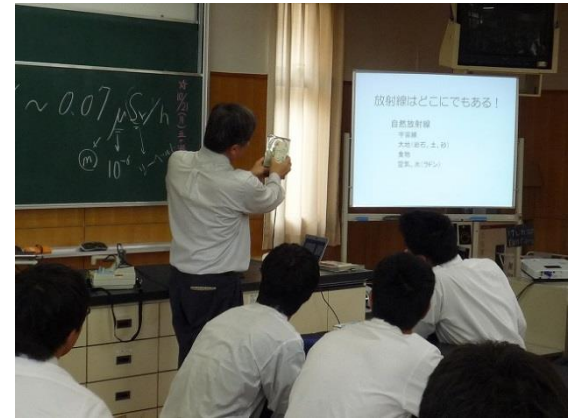 ~ 0.07 μSv/h
m 10⁻⁶ シーベルト
放射線はどこにでもある！
自然放射線
宇宙線
大地(岩石、土、砂)
食物
空気、水(ラドン)